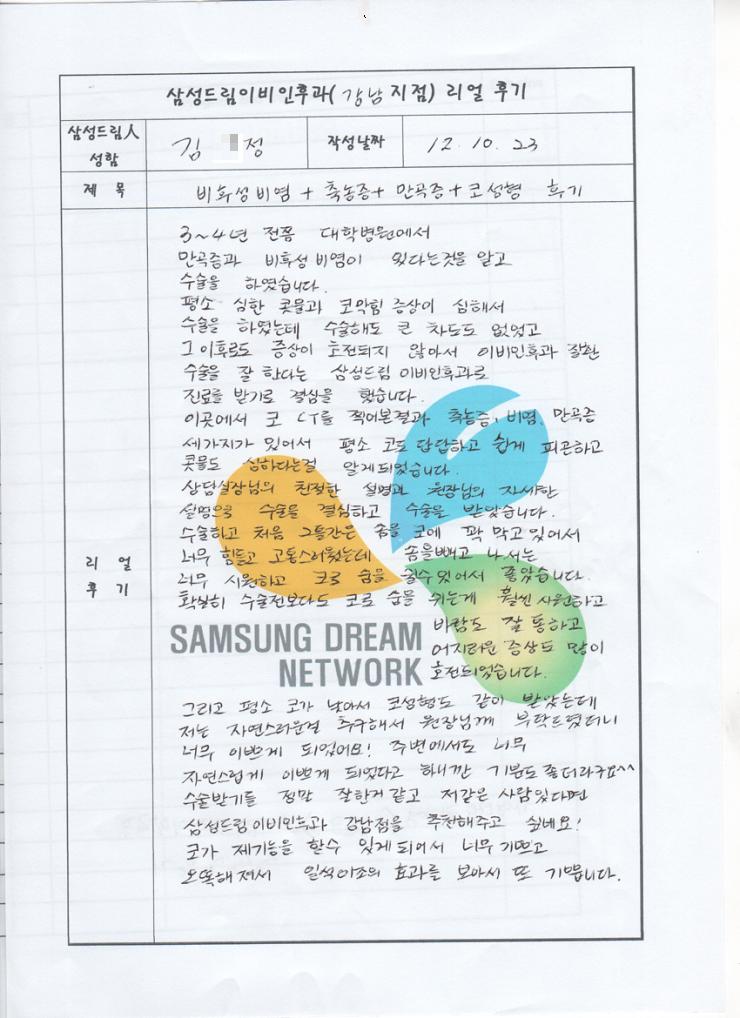 삼성드림이비인후과(강남지점) 리얼 후기
삼성드림人 성함
김 정
작성날짜
12. 10. 23
제 목
비후성비염 + 축농증 + 만곡증 + 코성형 후기
리 얼 후 기
3~4년 전쯤 대학병원에서
만곡증과 비후성비염이 있다는것을 알고
수술을 하였습니다.
평소 심한 콧물과 코막힘 증상이 심해서
수술을 하였는데 수술해도 큰 차도도 없었고
그 이후로도 증상이 호전되지 않아서 이비인후과 질환
수술을 잘 한다는 삼성드림 이비인후과로
진료를 받기로 결심을 했습니다.
이곳에서 코 CT를 찍어본결과 축농증, 비염, 만곡증
세가지가 있어서 평소 코도 답답하고 쉽게 피곤하고
콧물도 심하다는걸 알게되었습니다.
상담실장님의 친절한 설명과 원장님의 자세한
설명으로 수술을 결심하고 수술을 받았습니다.
수술하고 처음 그틀간은 솜을 코에 꽉 막고있어서
너무 힘들고 고통스러웠는데 솜을빼고 나서는
너무 시원하고 코로 숨을 쉴수있어서 좋았습니다.
확실히 수술전보다도 코로 숨을 쉬는게 훨씬 시원하고
바람도 잘 통하고
어지러운 증상도 많이
호전되었습니다.
SAMSUNG DREAM
NETWORK
그리고 평소 코가 낮아서 코성형도 같이 받았는데
저는 자연스러운걸 추구해서 원장님께 부탁드렸더니
너무 이쁘게 되었어요! 주변에서도 너무
자연스럽게 이쁘게 되었다고 하니깐 기분도좋더라구요^^
수술받기를 정말 잘한거같고 저같은 사람있다면
삼성드림이비인후과 강남점을 추천해주고 싶네요!
코가 제기능을 할수 있게되어서 너무 기쁘고
오똑해져서 일석이조의 효과를 보아서 또 기쁩니다.